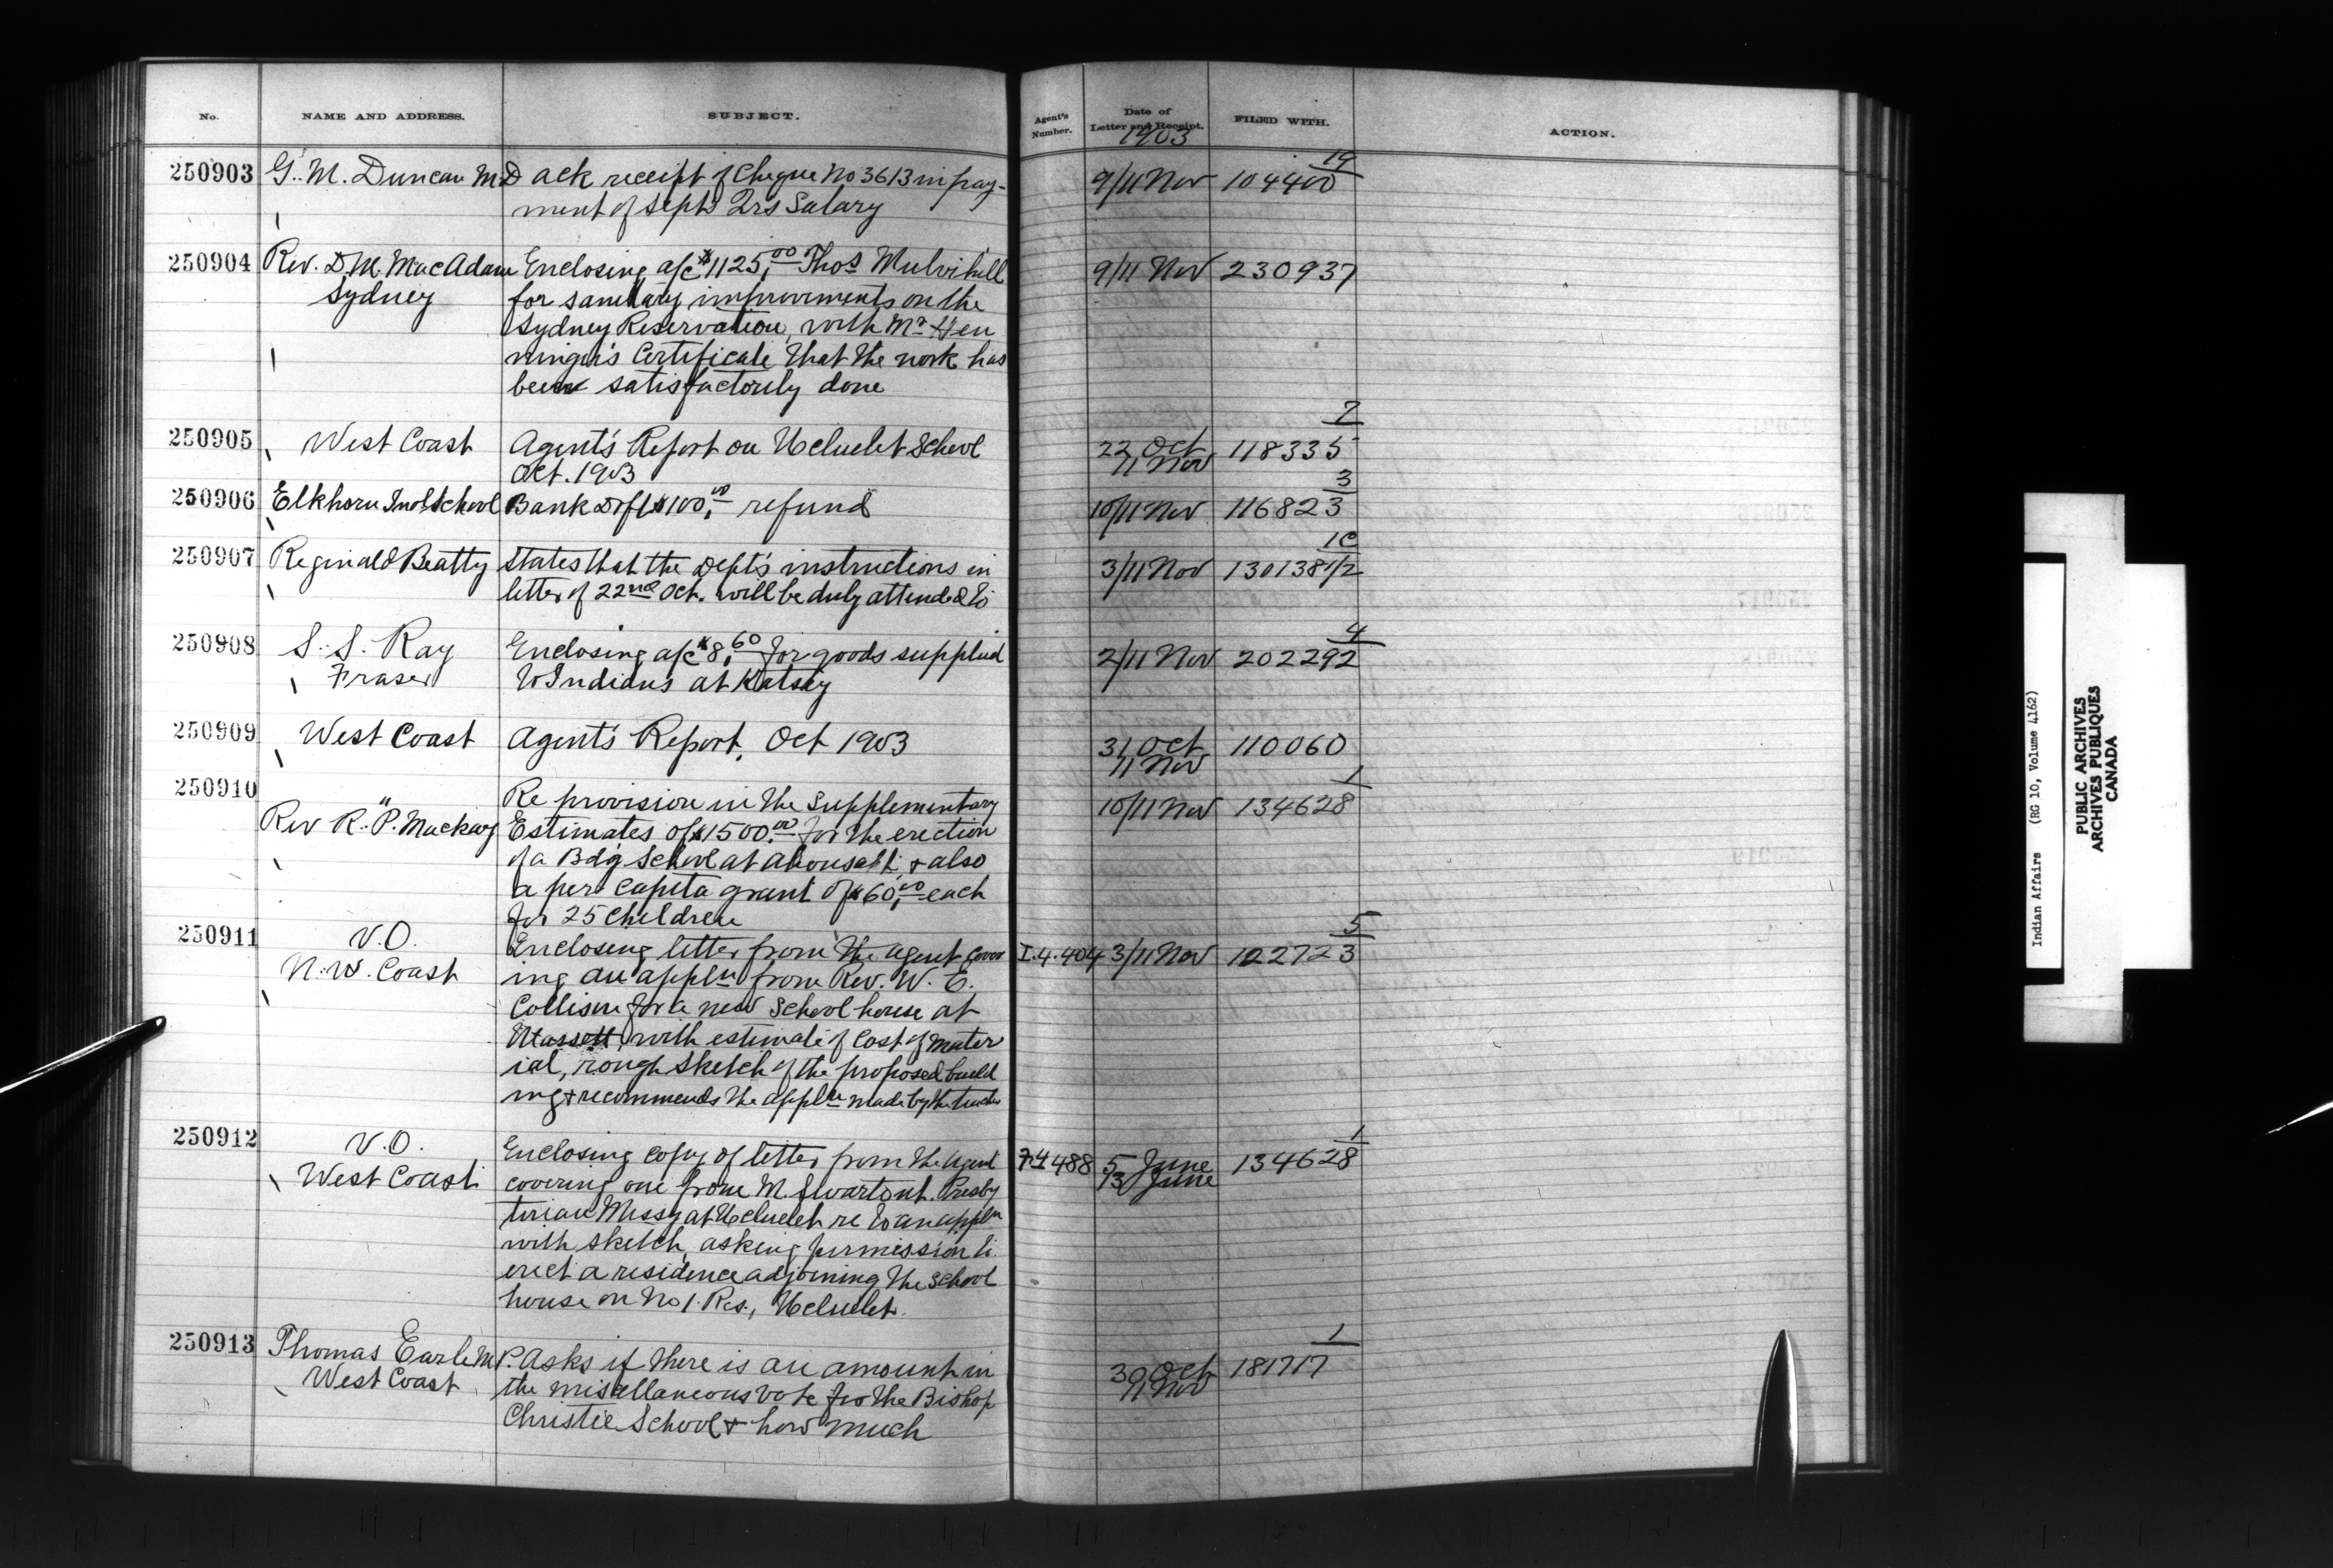 No. NAME AND ADDRESS. SUBJECT. Agent's Number. Date of Letter and Receipt. FILED WITH. ACTION.
1903
250903 G. M. Duncan M.D ack receipt of Cheque No 3613 in pay- 9/11 Nov 104400 19
ment of Septr Qrs Salary
250904 Rev. D. M. MacAdam Enclosing a/c $1125.00 Thos Mulvihill 9/11 Nov 230937
Sydney for sanitary improvements on the
Sydney Reservation, with Mr Hen
ninger's Certificate that the work has
been satisfactorily done
250905 West Coast Agent's Report on Ucluelet School 22 Oct 118335 7
Oct. 1903 11 Nov
250906 Elkhorn Indl School Bank Dft $100.00 refund 10/11 Nov 116823 3
250907 Reginald Beatty States that the Dept's instructions in 3/11 Nov 130138 1/2 1C
letter of 22nd Oct. will be duly attended to
250908 S. S. Ray Enclosing a/c $8.60 for goods supplied 2/11 Nov 202292 4
Fraser to Indians at Katsey
250909 West Coast Agent's Report, Oct 1903 31 Oct 110060
11 Nov
250910 " Re provision in the Supplementary 10/11 Nov 134628 1
Rev R. P. Mackay Estimates of $1500.00 for the erection
of a Bdg School at Ahousaht; & also
a per Capita grant of $60.00 each
for 25 children
250911 V.O. Enclosing letter from the agent cover I.4.404 3/11 Nov 122723 5
N.W. Coast ing an appln from Rev. W. E.
Collison for a new School house at
Massett, with estimate of cost of mater
ial, rough sketch of the proposed build
ing & recommends the appln made by the teacher
250912 V.O. Enclosing copy of letter from the agent 488 5 June 134628 1
West Coast covering one from M. Swartout. Presby 13 June
terian Missy at Ucluelet re to an appln
with sketch, asking permission to
erect a residence adjoining the school
house on No 1. Res., Ucluelet.
250913 Thomas Earle M.P. Asks if there is an amount in 30 Oct 181717 1
West Coast the miscellaneous vote for the Bishop 11 Nov
Christie School & how much
Indian Affairs (RG 10, Volume 4162)
PUBLIC ARCHIVES
ARCHIVES PUBLIQUES
CANADA